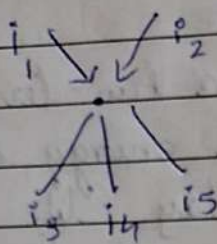 i₁ i₂
i₃ i₄ i₅